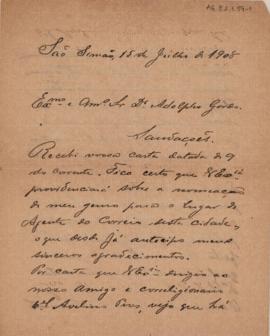 São Simão, 15 de Julho de 1908
Exmo e Amo Sr Dr Adolpho Gordo.
Saudações.
Recebi vossa carta datada de 9
do corrente. Fico certo que V Excia
providenciará sobre a nomeação
de meu genro para o lugar de
Agente do Correio desta cidade,
o que desde já antecipo meus
sinceros agradecimentos.
Por carta que V Excia dirigio ao
nosso Amigo e correligionario
Cel Avelino, vejo que há